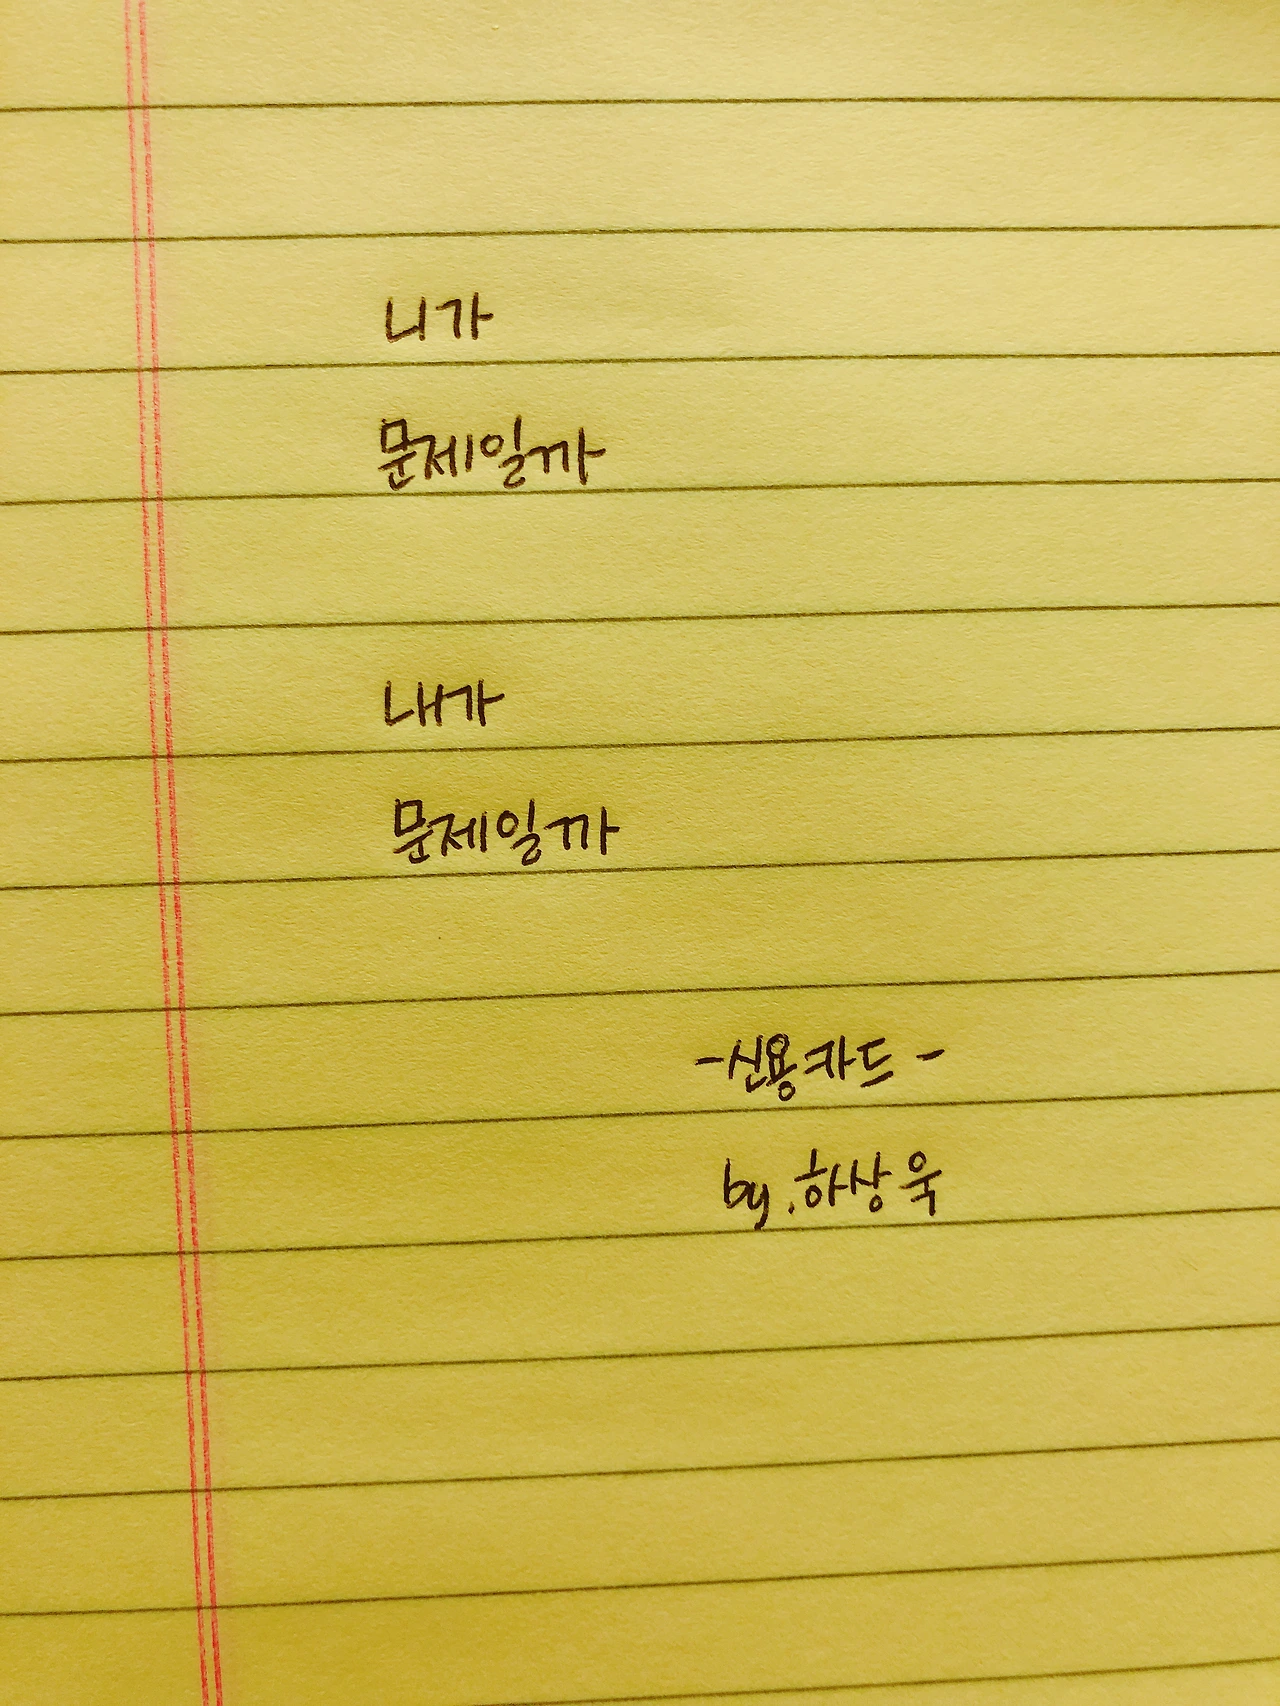 니가
문제일까
내가
문제일까
-신용카드-
by.하상욱